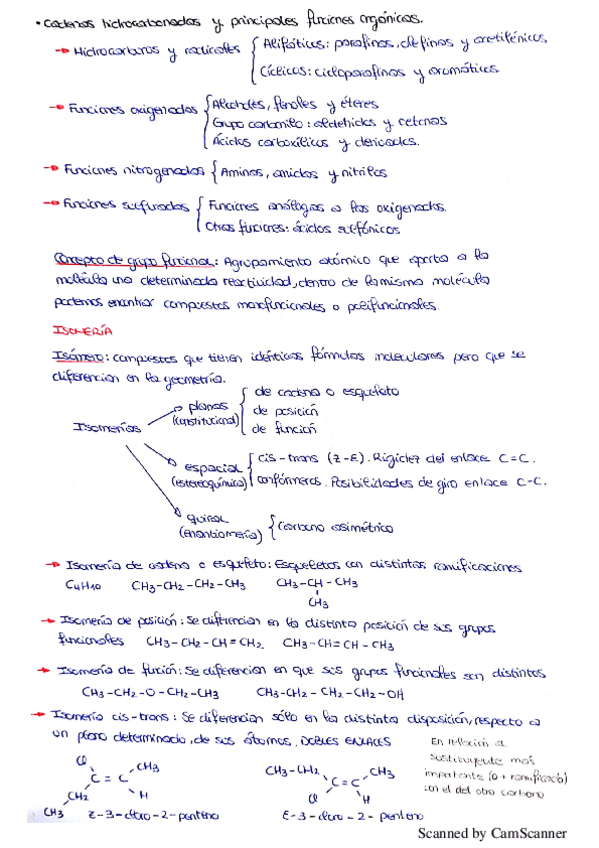 • Cadenas hidrocarbonadas y principales funciones orgánicas.
→ Hidrocarburos y radicales { Alifáticos: parafinas, olefinas y acetilénicos
Cíclicos: cicloparafinas y aromáticos
→ Funciones oxigenadas { Alcoholes, fenoles y éteres
Grupo carbonilo: aldehidos y cetonas
Ácidos carboxílicos y derivados.
→ Funciones nitrogenadas { Aminas, amidas y nitrilos
→ Funciones sulfuradas { Funciones análogas a las oxigenadas.
Otras funciones: ácidos sulfónicos
Concepto de grupo funcional: Agrupamiento atómico que aporta a la
molécula una determinada reactividad, dentro de la misma molécula
podemos encontrar compuestos monofuncionales o polifuncionales.
ISOMERÍA
Isómero: compuestos que tienen idénticas fórmulas moleculares pero que se
diferencian en la geometría.
Isomerías
planas (constitucional) { de cadena o esqueleto
de posición
de función
espacial (estereoquímica) { cis-trans (Z-E). Rigidez del enlace C=C.
confórmeros. Posibilidades de giro enlace C-C.
quiral (enantiomería) { Carbono asimétrico
→ Isomería de cadena o esqueleto: Esqueletos con distintas ramificaciones
C4H10 CH3-CH2-CH2-CH3 CH3-CH-CH3
CH3
→ Isomería de posición: Se diferencian en la distinta posición de sus grupos
funcionales CH3-CH2-CH=CH2. CH3-CH=CH-CH3
→ Isomería de función: Se diferencian en que sus grupos funcionales son distintos
CH3-CH2-O-CH2-CH3 CH3-CH2-CH2-CH2-OH
→ Isomería cis-trans: Se diferencian sólo en la distinta disposición, respecto a
un plano determinado, de sus átomos. DOBLES ENLACES
En relación al
sustituyente más
importante (o + ramificado)
con el del otro carbono
Cl CH3
C=C
CH2 H
CH3
Z-3-cloro-2-penteno
CH3-CH2 CH3
C=C
Cl H
E-3-cloro-2-penteno
Scanned by CamScanner